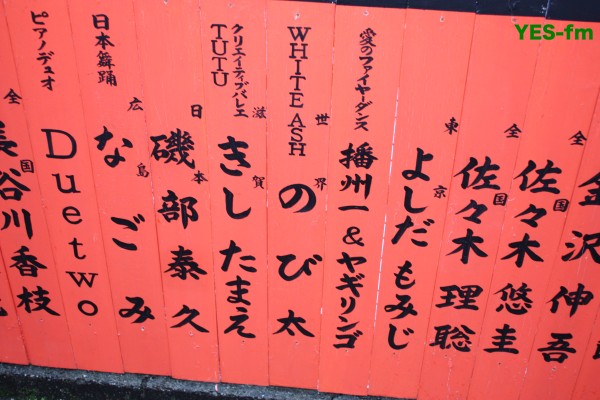 YES-fm
全国
金沢伸吾
全国
佐々木悠圭
佐々木理聡
東京
よしだもみじ
愛のファイヤーダンス
播州一&ヤギリンゴ
WHITE ASH
世界
のび太
クリエイティブバレエ
TUTU
滋賀
きしたまえ
日本
磯部泰久
日本舞踊
広島
なごみ
ピアノデュオ
Duetwo
全国
長谷川香枝